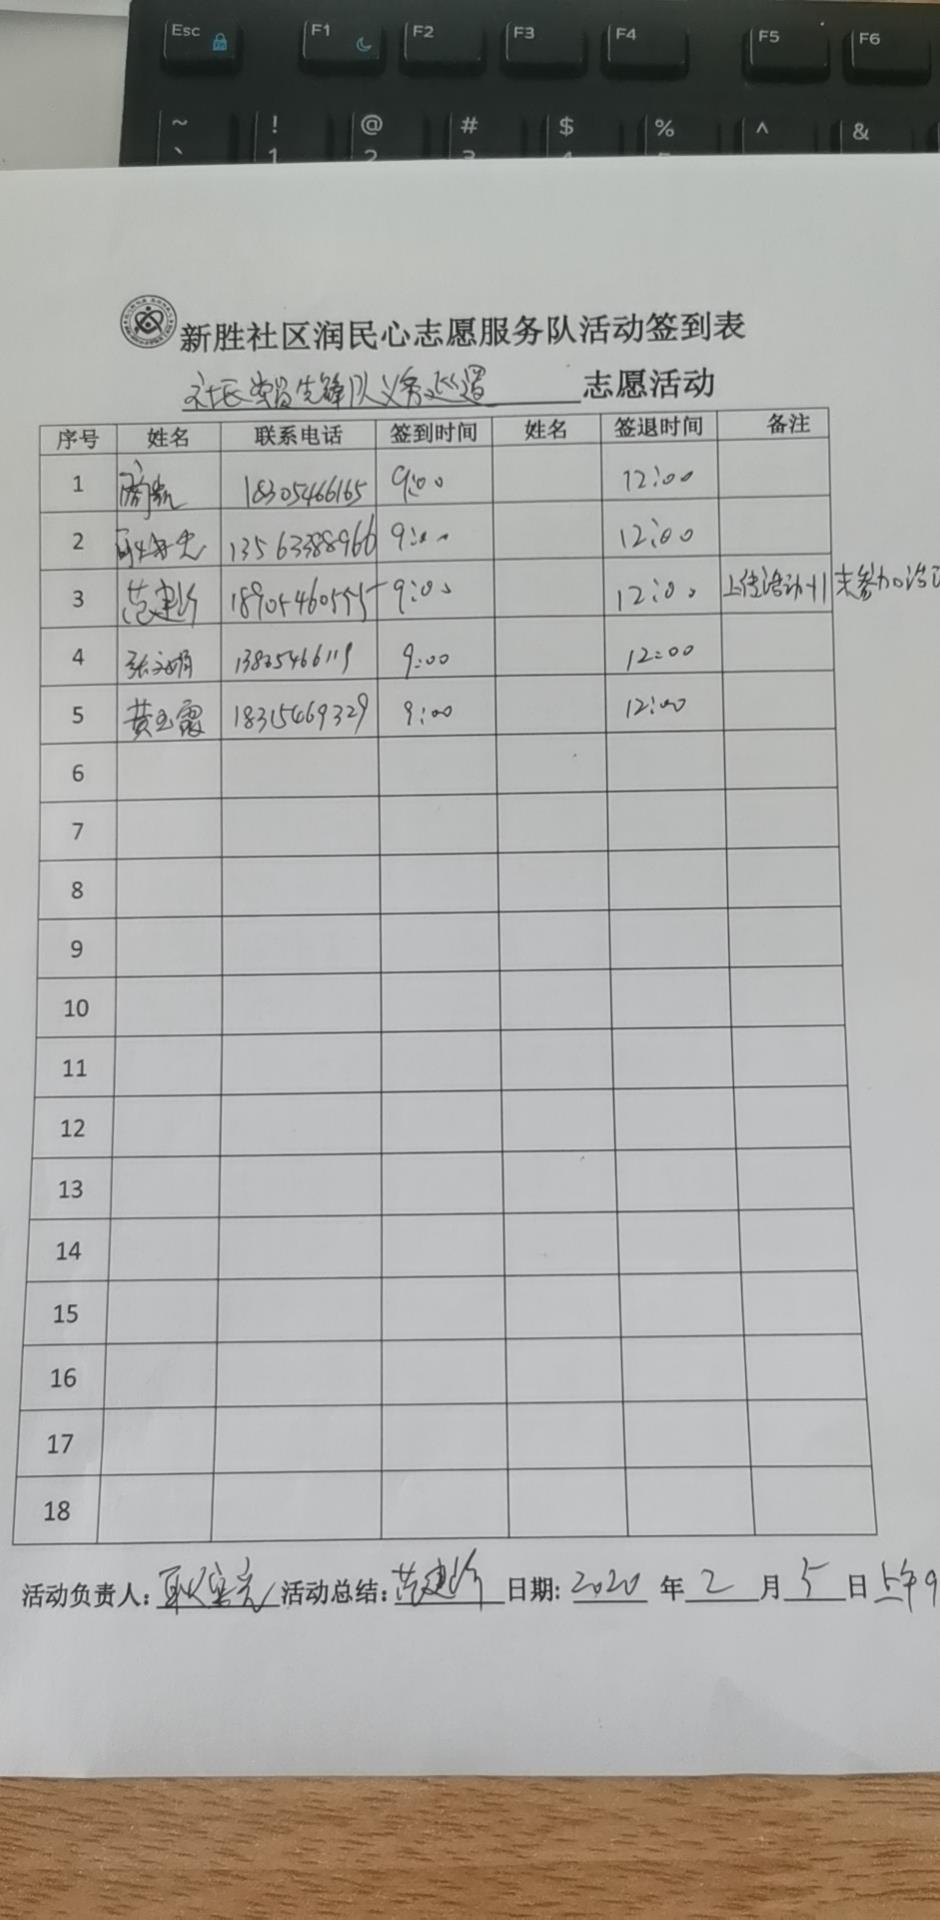 Esc F1 F2 F3 F4 F5 F6
~ ! @ # $ % ^ &
` 1 2 3 4 5
新胜社区润民心志愿服务队活动签到表
先锋队义务巡逻 志愿活动
序号 姓名 联系电话 签到时间 姓名 签退时间 备注
1 18305466165 9:00 12:00
2 13563388966 9:00 12:00
3 范建珍 18905460555 9:00 12:00 上传活动 未参加活
4 张文娟 9:00 12:00
5 黄玉霞 18315469329 9:00 12:00
6
7
8
9
10
11
12
13
14
15
16
17
18
活动负责人: 耿宝亮 活动总结: 范建珍 日期: 2020 年 2 月 5 日 上午9